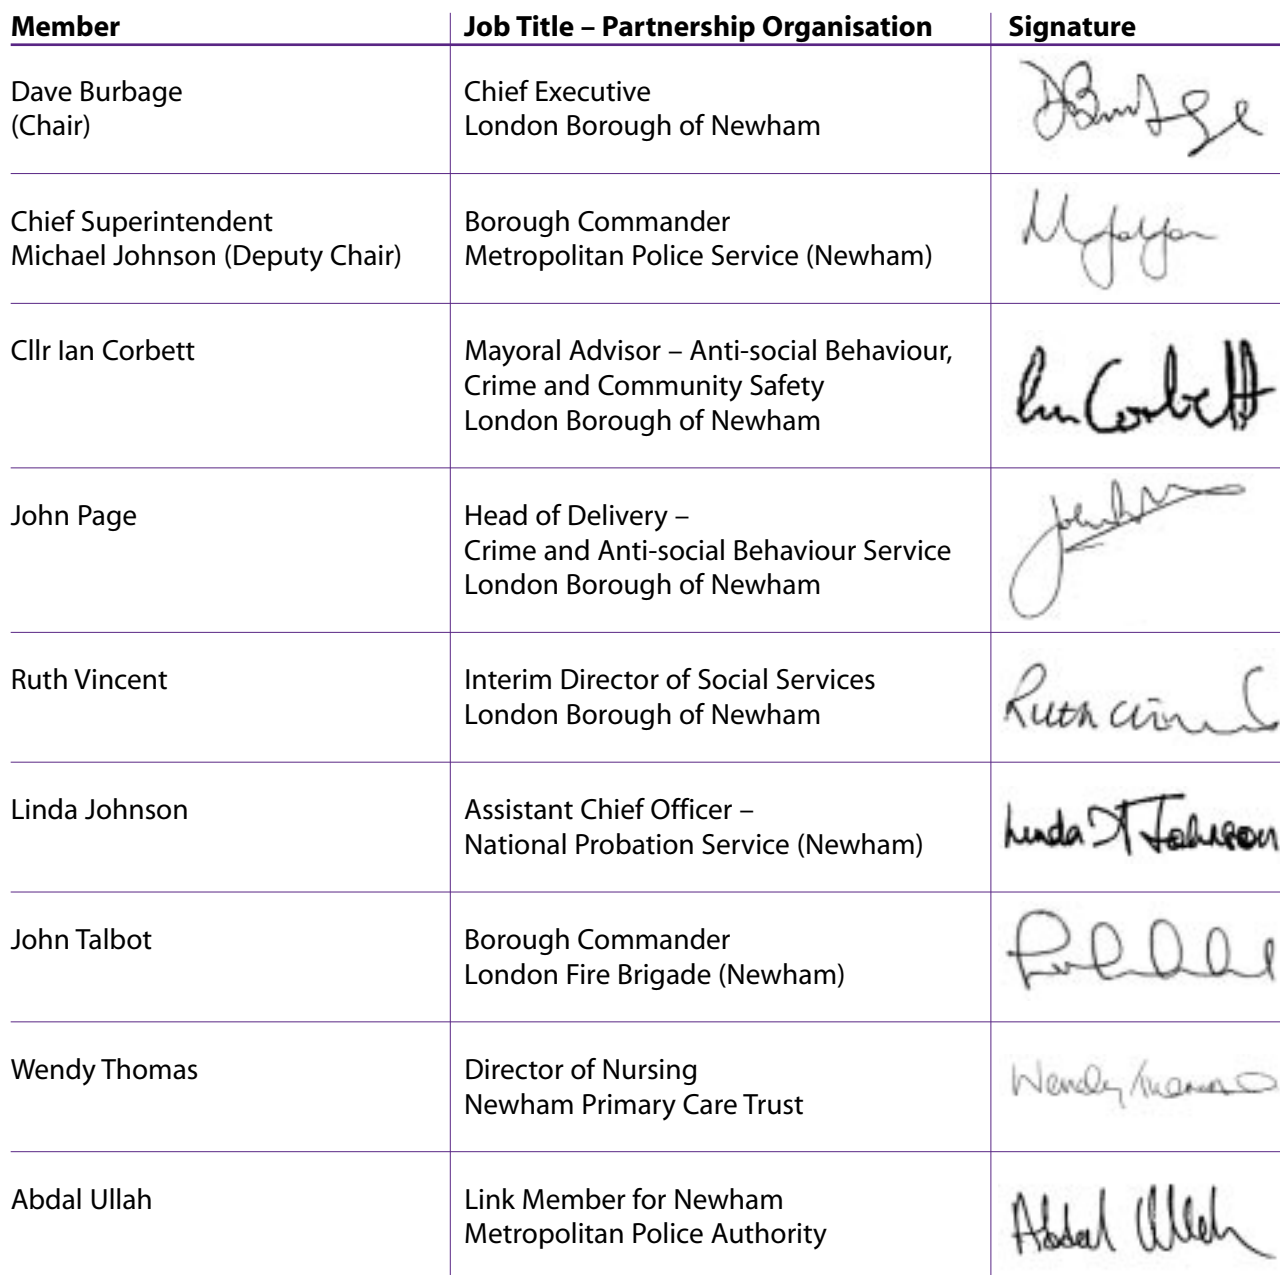 Member Job Title – Partnership Organisation Signature
Dave Burbage
(Chair)
Chief Executive
London Borough of Newham
Chief Superintendent
Michael Johnson (Deputy Chair)
Borough Commander
Metropolitan Police Service (Newham)
Cllr Ian Corbett
Mayoral Advisor – Anti-social Behaviour,
Crime and Community Safety
London Borough of Newham
Ian Corbett
John Page
Head of Delivery –
Crime and Anti-social Behaviour Service
London Borough of Newham
Ruth Vincent
Interim Director of Social Services
London Borough of Newham
Ruth
Linda Johnson
Assistant Chief Officer –
National Probation Service (Newham)
Linda Johnson
John Talbot
Borough Commander
London Fire Brigade (Newham)
Wendy Thomas
Director of Nursing
Newham Primary Care Trust
Wendy Thomas
Abdal Ullah
Link Member for Newham
Metropolitan Police Authority
Abdal Ullah